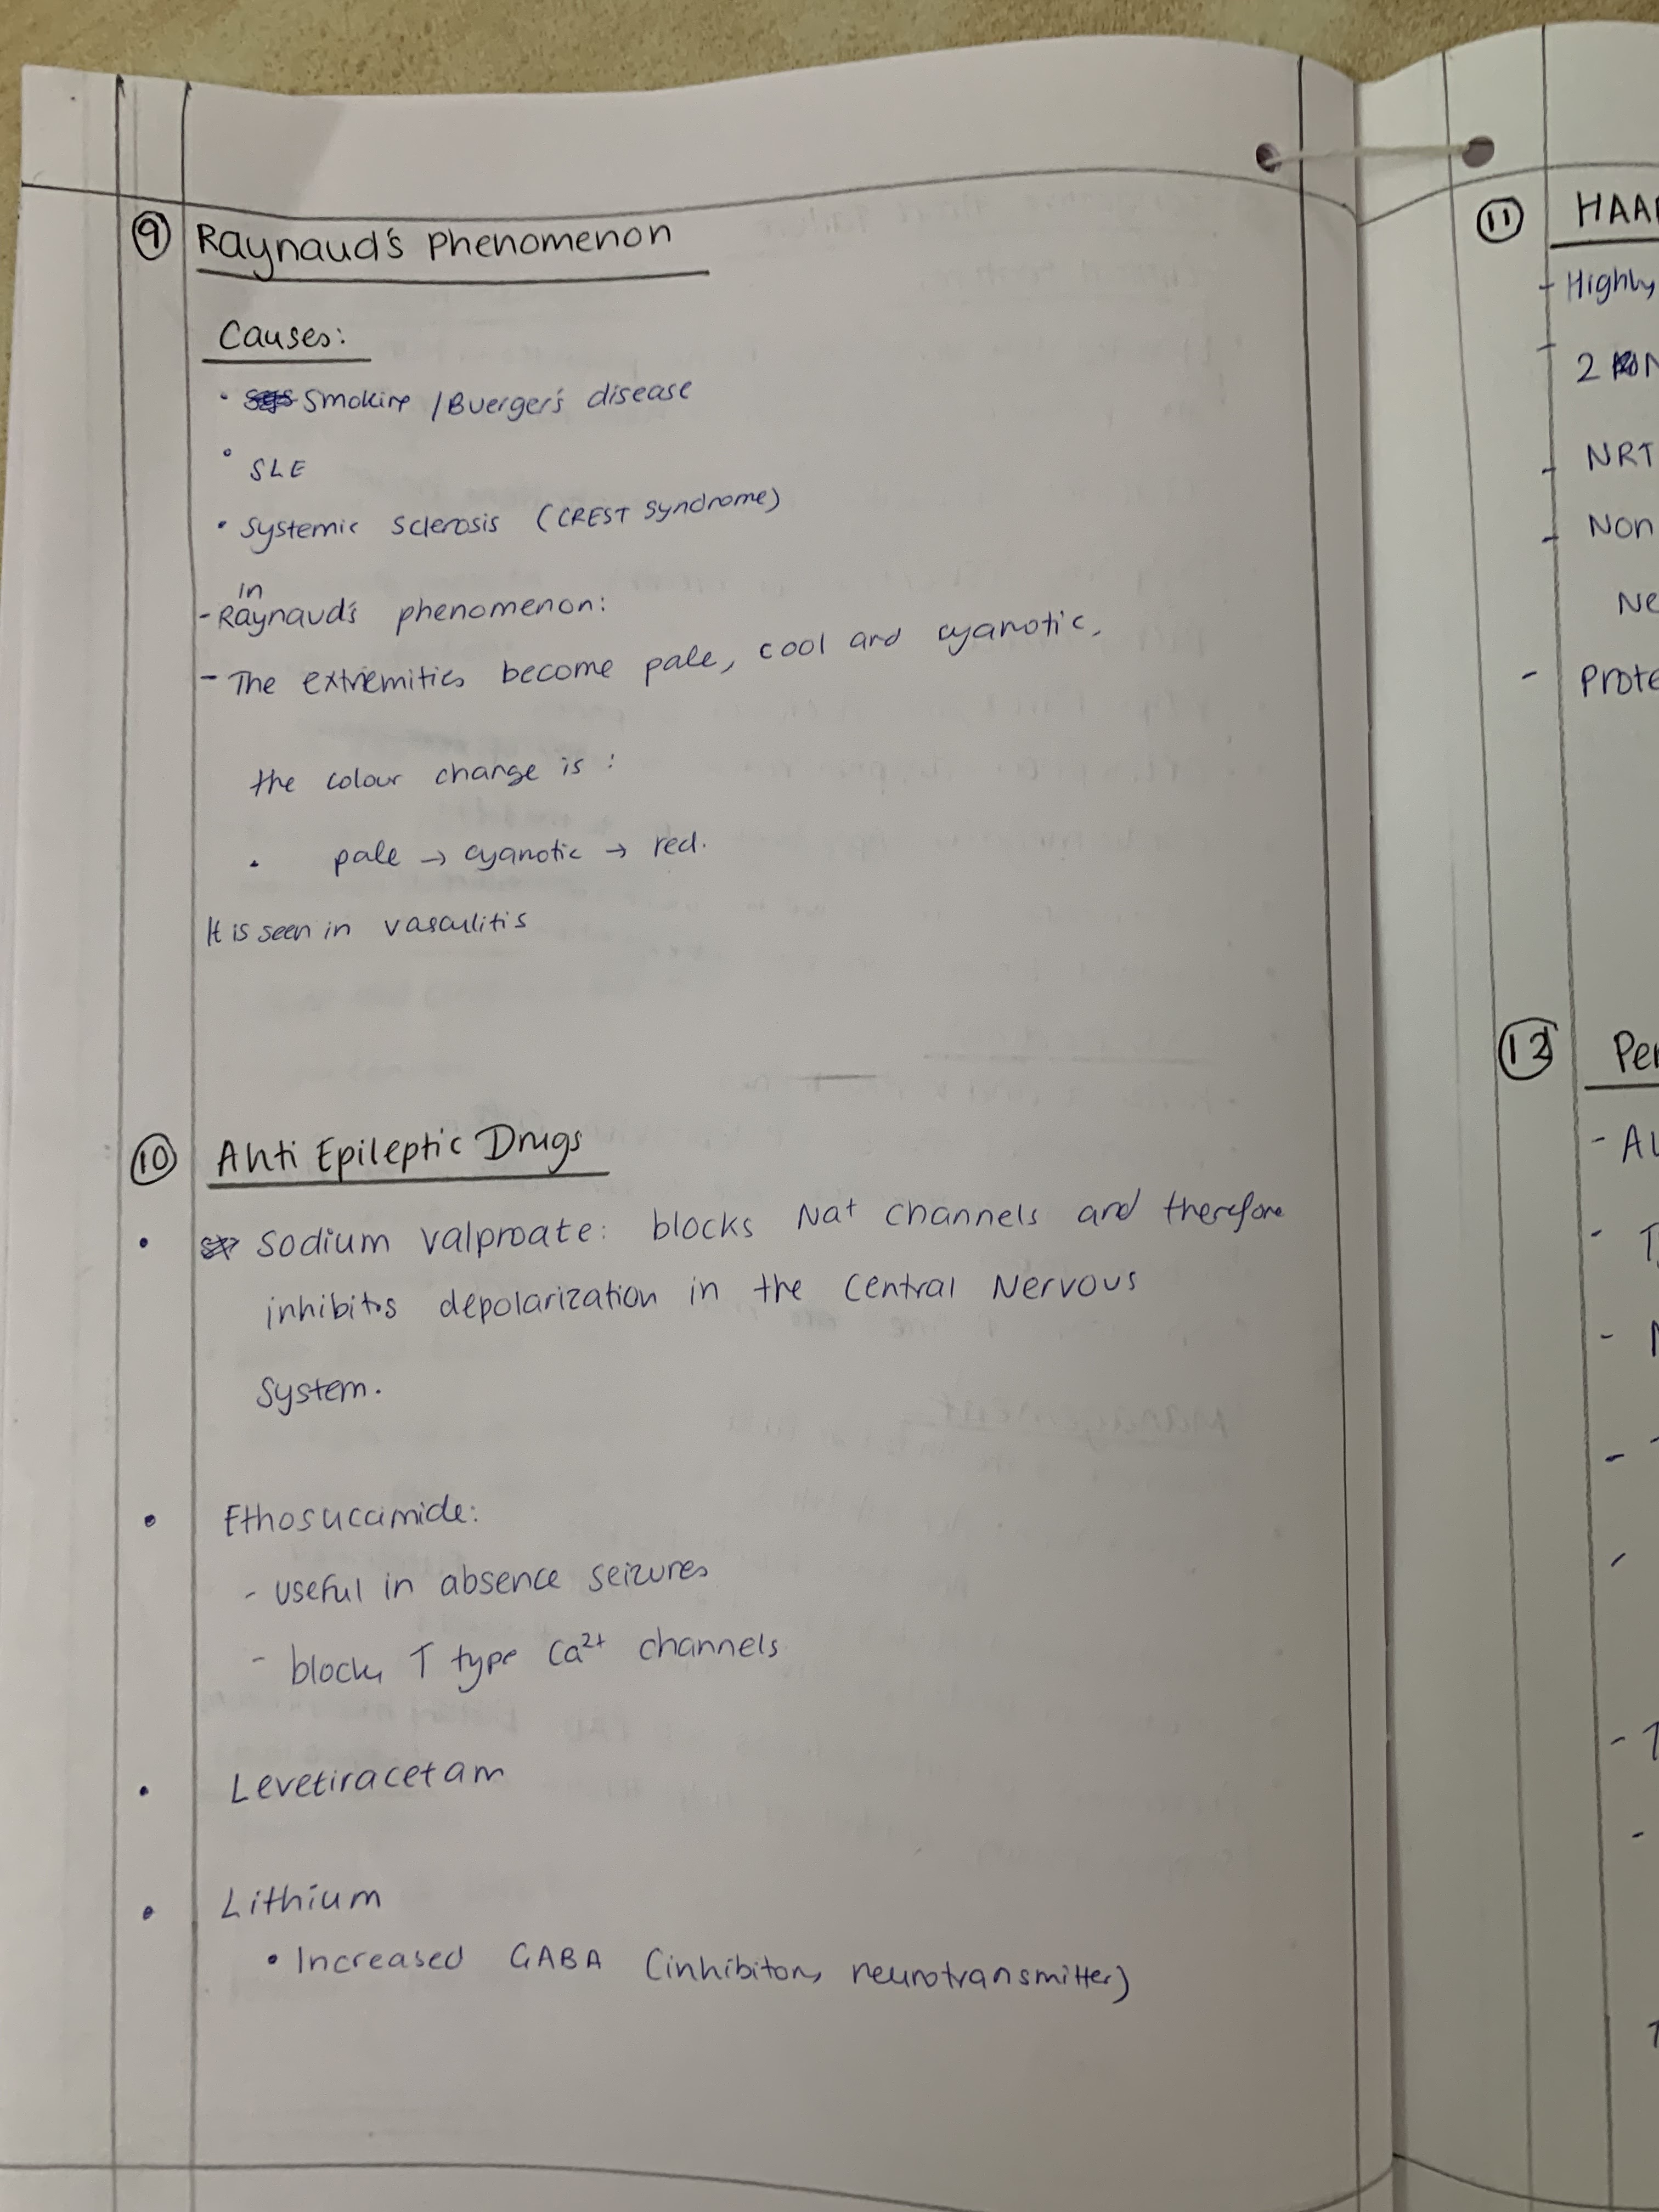 9 Raynaud's Phenomenon
Causes:
• Smoking / Buerger's disease
• SLE
• Systemic Sclerosis (CREST Syndrome)
in
- Raynaud's phenomenon:
- The extremities become pale, cool and cyanotic.
the colour change is :
• pale → cyanotic → red.
It is seen in vasculitis
10 Anti Epileptic Drugs
• Sodium valproate: blocks Na+ channels and therefore
inhibits depolarization in the Central Nervous
System.
• Ethosuccimide:
- useful in absence seizures
- blocks T type Ca2+ channels
• Levetiracetam
• Lithium
• Increased GABA (inhibitory neurotransmitter)
11 HAA
- Highly
- 2 N
- NRT
- Non
Ne
- Prote
12 Per
- Al